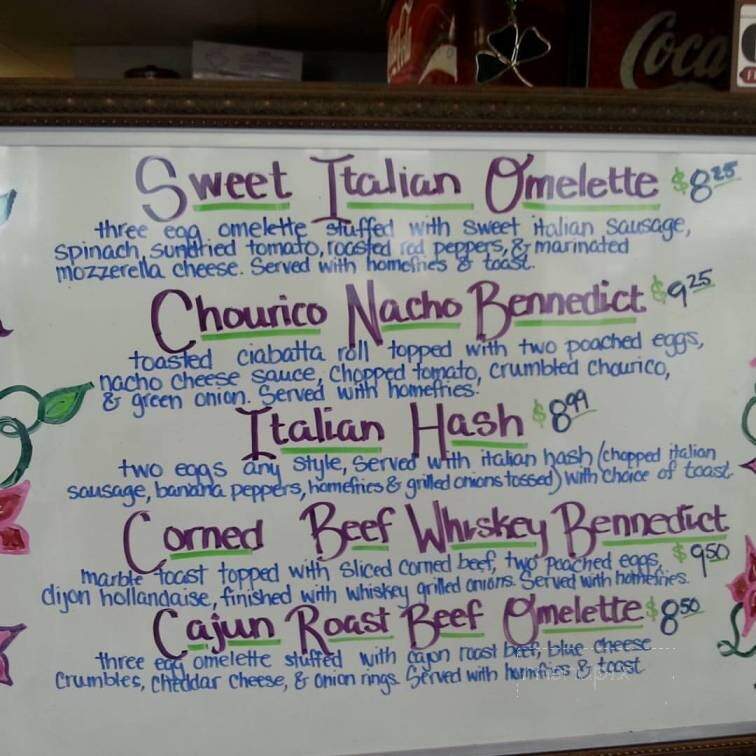 Coca-Cola
Coca
Sweet Italian Omelette $8.25
three egg omelette stuffed with sweet italian sausage,
spinach, sundried tomato, roasted red peppers, & marinated
mozzerella cheese. Served with homefries & toast.
Chourico Nacho Bennedict $9.25
toasted ciabatta roll topped with two poached eggs,
nacho cheese sauce, chopped tomato, crumbled chourico,
& green onion. Served with homefries.
Italian Hash $8.99
two eggs any style, served with italian hash (chopped italian
sausage, banana peppers, homefries & grilled onions tossed) with choice of toast
Corned Beef Whiskey Bennedict
marble toast topped with sliced corned beef, two poached eggs, $9.50
dijon hollandaise, finished with whiskey grilled onions. Served with homefries.
Cajun Roast Beef Omelette $8.50
three egg omelette stuffed with cajon roast beef, blue cheese
crumbles, cheddar cheese, & onion rings. Served with homefries & toast